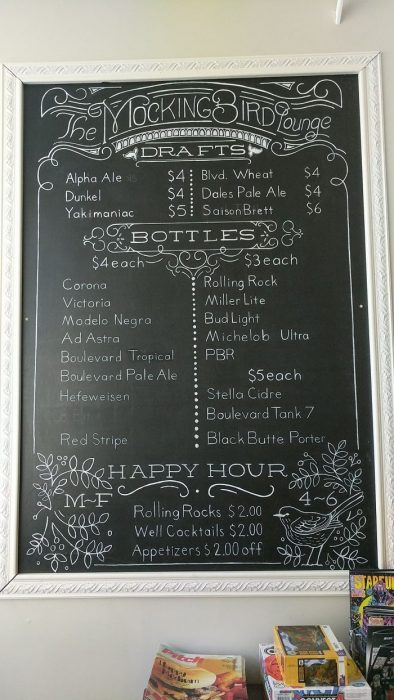 The MockingBird Lounge
DRAFTS
Alpha Ale $4
Dunkel $4
Yakimaniac $5
Blvd. Wheat $4
Dales Pale Ale $4
Saison Brett $6
BOTTLES
$4 each
Corona
Victoria
Modelo Negra
Ad Astra
Boulevard Tropical
Boulevard Pale Ale
Hefeweisen
Red Stripe
$3 each
Rolling Rock
Miller Lite
Bud Light
Michelob Ultra
PBR
$5 each
Stella Cidre
Boulevard Tank 7
Black Butte Porter
HAPPY HOUR
M~F
4~6
Rolling Rocks $2.00
Well Cocktails $2.00
Appetizers $2.00 off